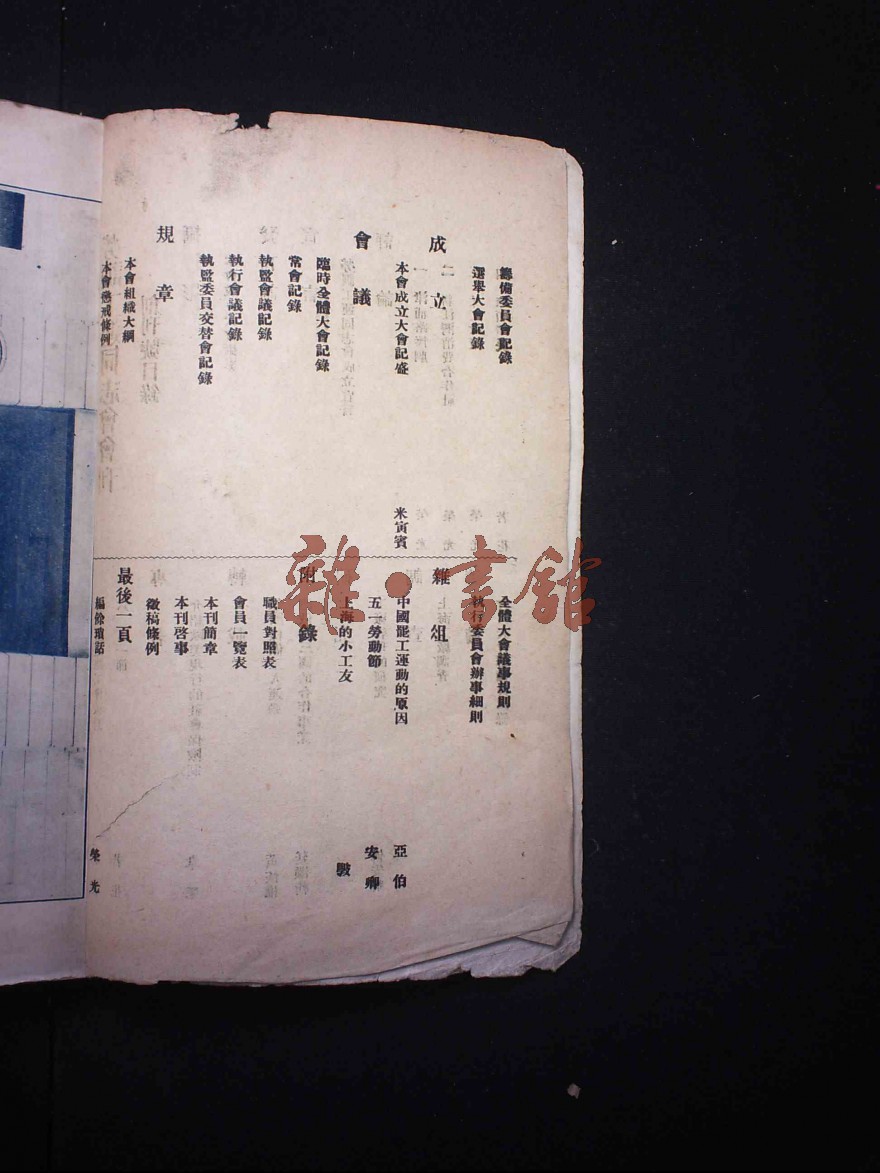 籌備委員會記錄
選舉大會記錄
成立
本會成立大會記盛 米寅賓
會議
臨時全體大會記錄
常會記錄
執監會議記錄
執行會議記錄
執監委員交替會記錄
規章
本會組織大綱
本會懲戒條例
全體大會議事規則
執行委員會辦事細則
雜俎
中國罷工運動的原因 亞伯
五一勞動節 安卿
上海的小工友
附錄
職員對照表
會員一覽表
本刊簡章
本刊啓事
徵稿條例
最後一頁
編餘瑣話 榮光
雜·書館